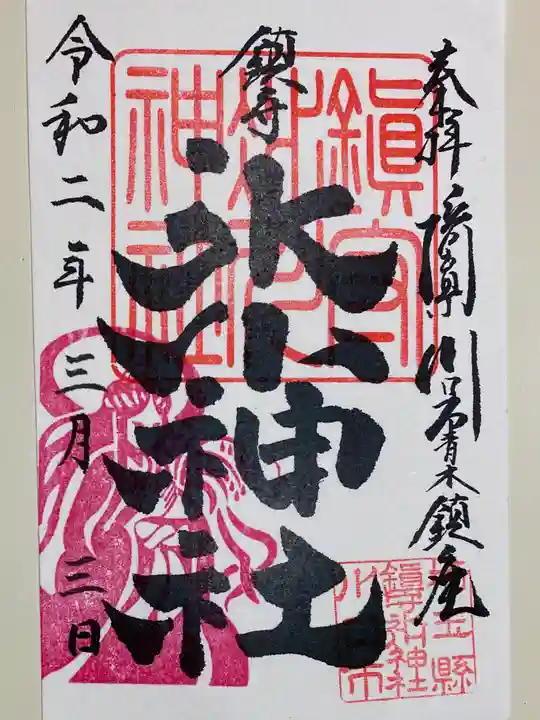 奉拝 川口青木鎮座
鎮守
氷川神社
令和二年三月三日
鎮守
氷川
神社
埼玉縣
鎮守氷川神社
川口市